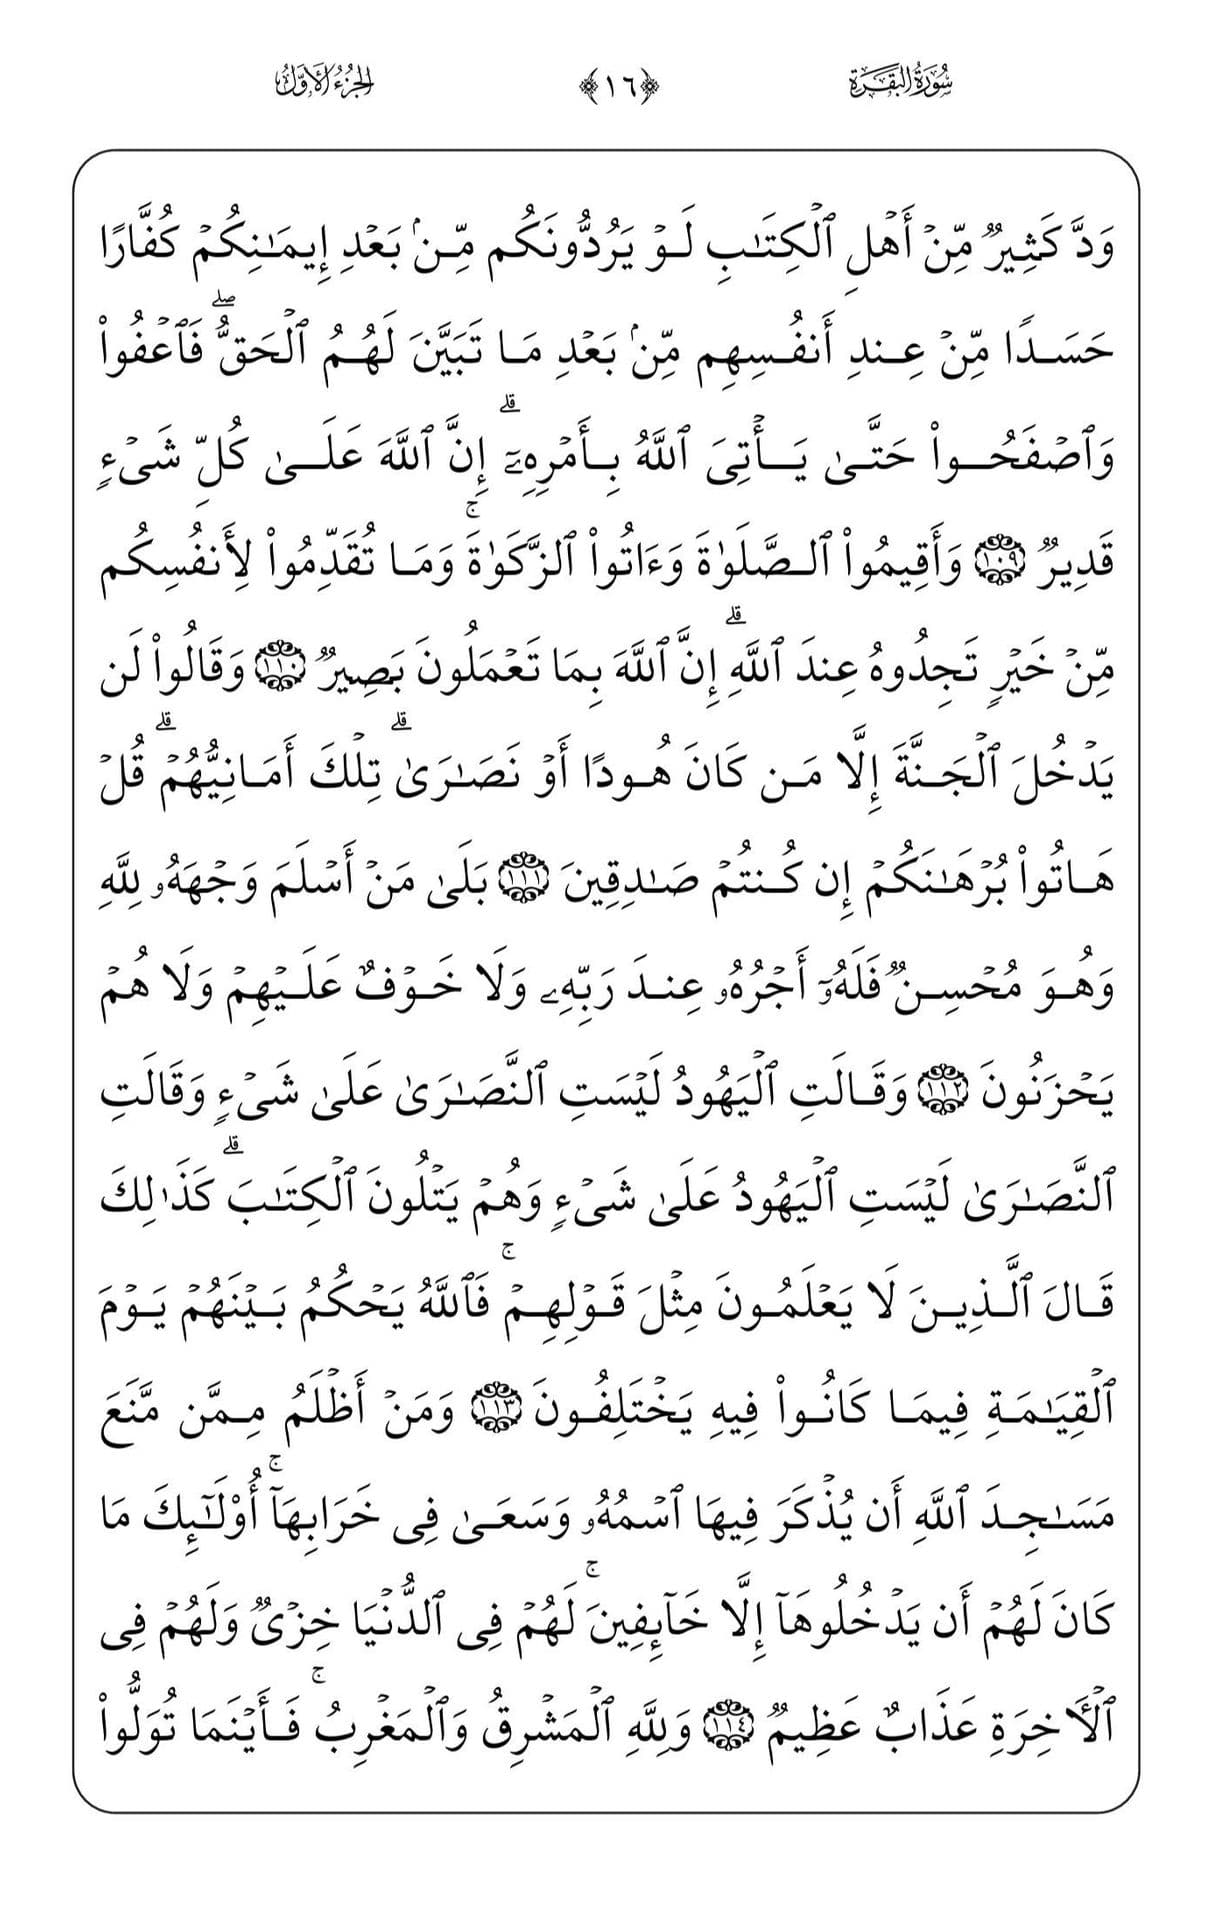 سُورَةُ البَقَرَةِ ﴿١٦﴾ الجُزْءُ الأَوَّلُ
وَدَّ كَثِيرٌ مِّنْ أَهْلِ ٱلْكِتَـٰبِ لَوْ يَرُدُّونَكُم مِّنۢ بَعْدِ إِيمَـٰنِكُمْ كُفَّارًا
حَسَدًا مِّنْ عِندِ أَنفُسِهِم مِّنۢ بَعْدِ مَا تَبَيَّنَ لَهُمُ ٱلْحَقُّ ۖ فَٱعْفُوا۟
وَٱصْفَحُوا۟ حَتَّىٰ يَأْتِىَ ٱللَّهُ بِأَمْرِهِۦٓ ۗ إِنَّ ٱللَّهَ عَلَىٰ كُلِّ شَىْءٍ
قَدِيرٌ ١٠٩ وَأَقِيمُوا۟ ٱلصَّلَوٰةَ وَءَاتُوا۟ ٱلزَّكَوٰةَ ۚ وَمَا تُقَدِّمُوا۟ لِأَنفُسِكُم
مِّنْ خَيْرٍ تَجِدُوهُ عِندَ ٱللَّهِ ۗ إِنَّ ٱللَّهَ بِمَا تَعْمَلُونَ بَصِيرٌ ١١٠ وَقَالُوا۟ لَن
يَدْخُلَ ٱلْجَنَّةَ إِلَّا مَن كَانَ هُودًا أَوْ نَصَـٰرَىٰ ۗ تِلْكَ أَمَانِيُّهُمْ ۗ قُلْ
هَاتُوا۟ بُرْهَـٰنَكُمْ إِن كُنتُمْ صَـٰدِقِينَ ١١١ بَلَىٰ مَنْ أَسْلَمَ وَجْهَهُۥ لِلَّهِ
وَهُوَ مُحْسِنٌ فَلَهُۥٓ أَجْرُهُۥ عِندَ رَبِّهِۦ وَلَا خَوْفٌ عَلَيْهِمْ وَلَا هُمْ
يَحْزَنُونَ ١١٢ وَقَالَتِ ٱلْيَهُودُ لَيْسَتِ ٱلنَّصَـٰرَىٰ عَلَىٰ شَىْءٍ وَقَالَتِ
ٱلنَّصَـٰرَىٰ لَيْسَتِ ٱلْيَهُودُ عَلَىٰ شَىْءٍ وَهُمْ يَتْلُونَ ٱلْكِتَـٰبَ ۗ كَذَٰلِكَ
قَالَ ٱلَّذِينَ لَا يَعْلَمُونَ مِثْلَ قَوْلِهِمْ ۚ فَٱللَّهُ يَحْكُمُ بَيْنَهُمْ يَوْمَ
ٱلْقِيَـٰمَةِ فِيمَا كَانُوا۟ فِيهِ يَخْتَلِفُونَ ١١٣ وَمَنْ أَظْلَمُ مِمَّن مَّنَعَ
مَسَـٰجِدَ ٱللَّهِ أَن يُذْكَرَ فِيهَا ٱسْمُهُۥ وَسَعَىٰ فِى خَرَابِهَآ ۚ أُو۟لَـٰٓئِكَ مَا
كَانَ لَهُمْ أَن يَدْخُلُوهَآ إِلَّا خَآئِفِينَ ۚ لَهُمْ فِى ٱلدُّنْيَا خِزْىٌ وَلَهُمْ فِى
ٱلْـَٔاخِرَةِ عَذَابٌ عَظِيمٌ ١١٤ وَلِلَّهِ ٱلْمَشْرِقُ وَٱلْمَغْرِبُ ۚ فَأَيْنَمَا تُوَلُّوا۟